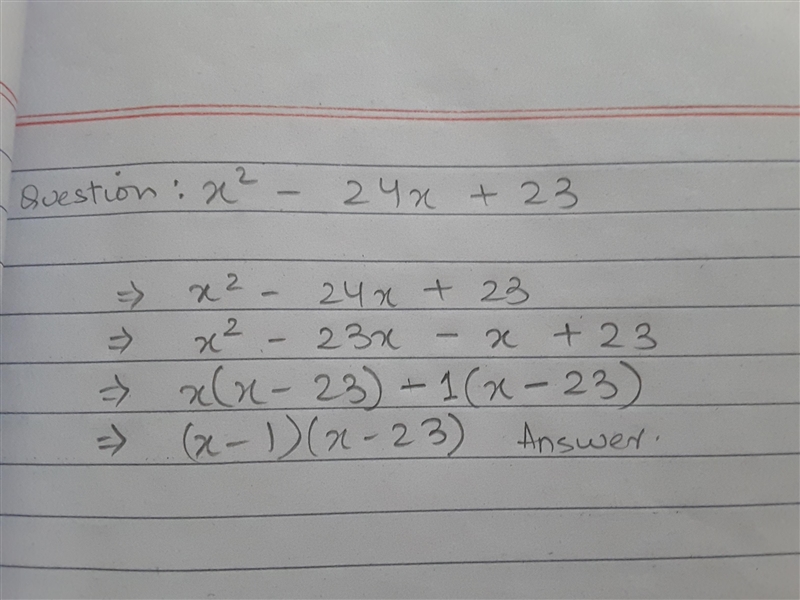 Question: x² - 24x + 23
⇒ x² - 24x + 23
⇒ x² - 23x - x + 23
⇒ x(x - 23) - 1(x - 23)
⇒ (x - 1)(x - 23) Answer.